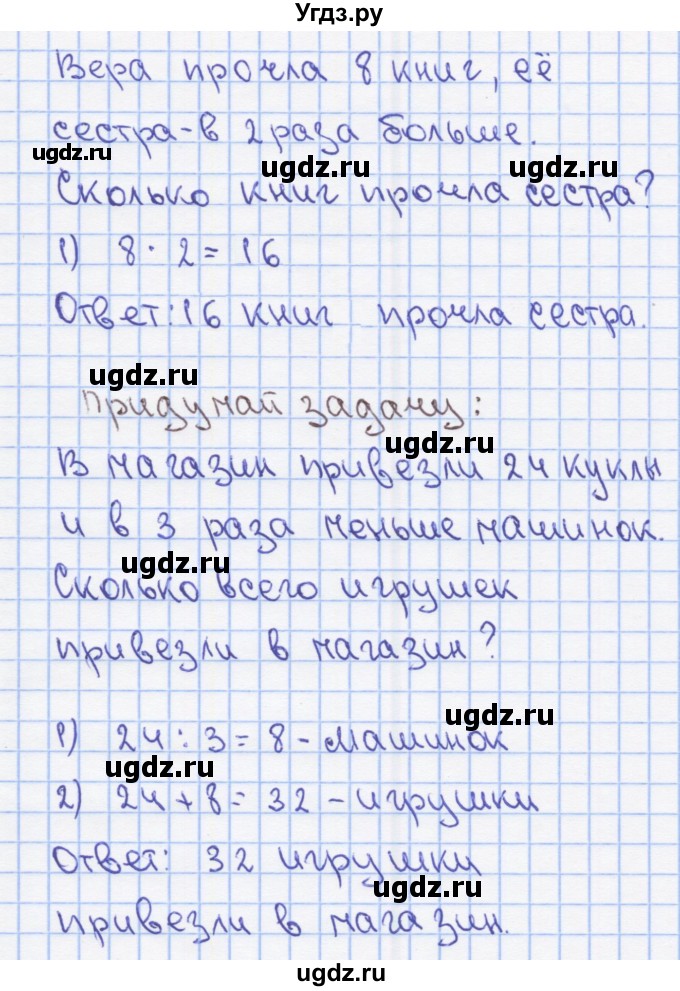 Угдз.ру
Вера прочла 8 книг, её
сестра - в 2 раза больше.
ugdz.ru ugdz.ru ugdz.ru
Сколько книг прочла сестра?
1) 8 · 2 = 16
Ответ: 16 книг прочла сестра.
ugdz.ru
Придумай задачу:
ugdz.ru
В магазин привезли 24 куклы
и в 3 раза меньше машинок.
ugdz.ru
Сколько всего игрушек
привезли в магазин?
ugdz.ru
1) 24 : 3 = 8 - машинок
ugdz.ru
2) 24 + 8 = 32 - игрушки
Ответ: 32 игрушки
ugdz.ru
привезли в магазин.
ugdz.ru